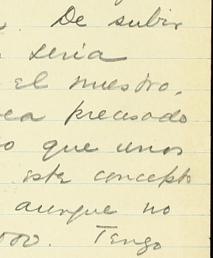 . De subir
seria
el nuestro.
ea precisado
o que unos
este concepto
aunque no
Tengo